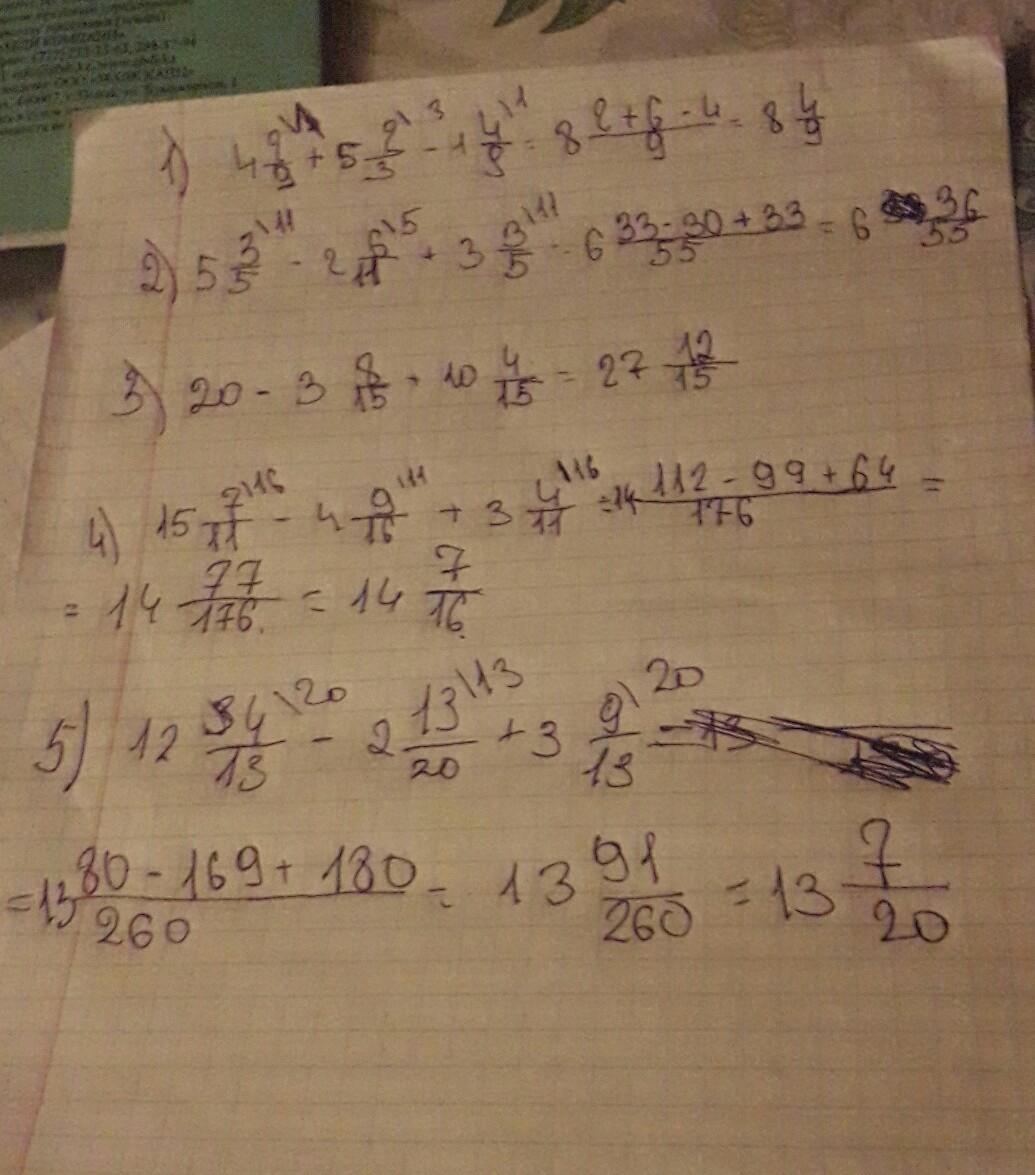 1) 4 2/9 \1 + 5 2/3 \3 - 1 4/9 \1 = 8 (2+6-4)/9 = 8 4/9
2) 5 3/5 \11 - 2 6/11 \5 + 3 3/5 \11 = 6 (33-30+33)/55 = 6 36/55
3) 20 - 3 8/15 + 10 4/15 = 27 12/15
4) 15 7/11 \16 - 4 9/16 \11 + 3 4/11 \16 = 14 (112-99+64)/176 =
= 14 77/176 = 14 7/16
5) 12 4/13 \20 - 2 13/20 \13 + 3 9/13 \20
= 13 (80-169+180)/260 = 13 91/260 = 13 7/20